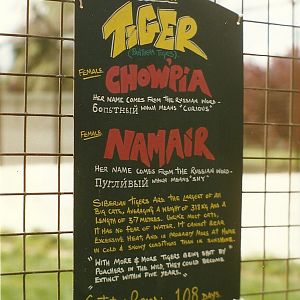 TIGER
(PANTHERA TIGRIS)
FEMALE
CHOWPIA
HER NAME COMES FROM THE RUSSIAN WORD -
WHICH MEANS "CURIOUS"
FEMALE
NAMAIR
HER NAME COMES FROM THE RUSSIAN WORD-
ПУГЛИВЫЙ WHICH MEANS "SHY"
SIBERIAN TIGERS ARE THE LARGEST OF ALL
BIG CATS, AVERAGING A WEIGHT OF 318KG AND A
LENGTH OF 3.7 METRES. UNLIKE MOST CATS,
IT HAS NO FEAR OF WATER. IT CANNOT BEAR
EXCESSIVE HEAT, AND IS PROBABLY MORE AT HOME
IN COLD & SNOWY CONDITIONS THAN IN SUNSHINE.
"WITH MORE & MORE TIGERS BEING SHOT BY
POACHERS IN THE WILD, THEY COULD BECOME
EXTINCT WITHIN FIVE YEARS."
108 DAYS